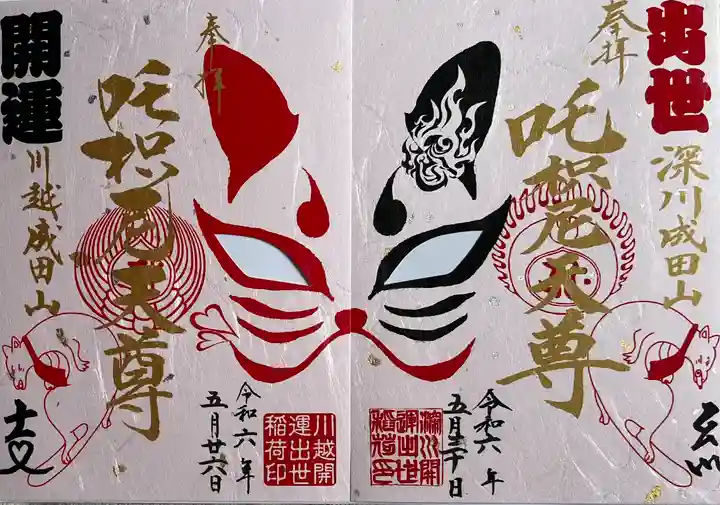 出世
奉拝
深川成田山
吒枳尼天尊
令和六年
五月三十日
深川開
運出世
稲荷印
開運
奉拝
川越成田山
吒枳尼天尊
令和六年
五月廿六日
川越開
運出世
稲荷印